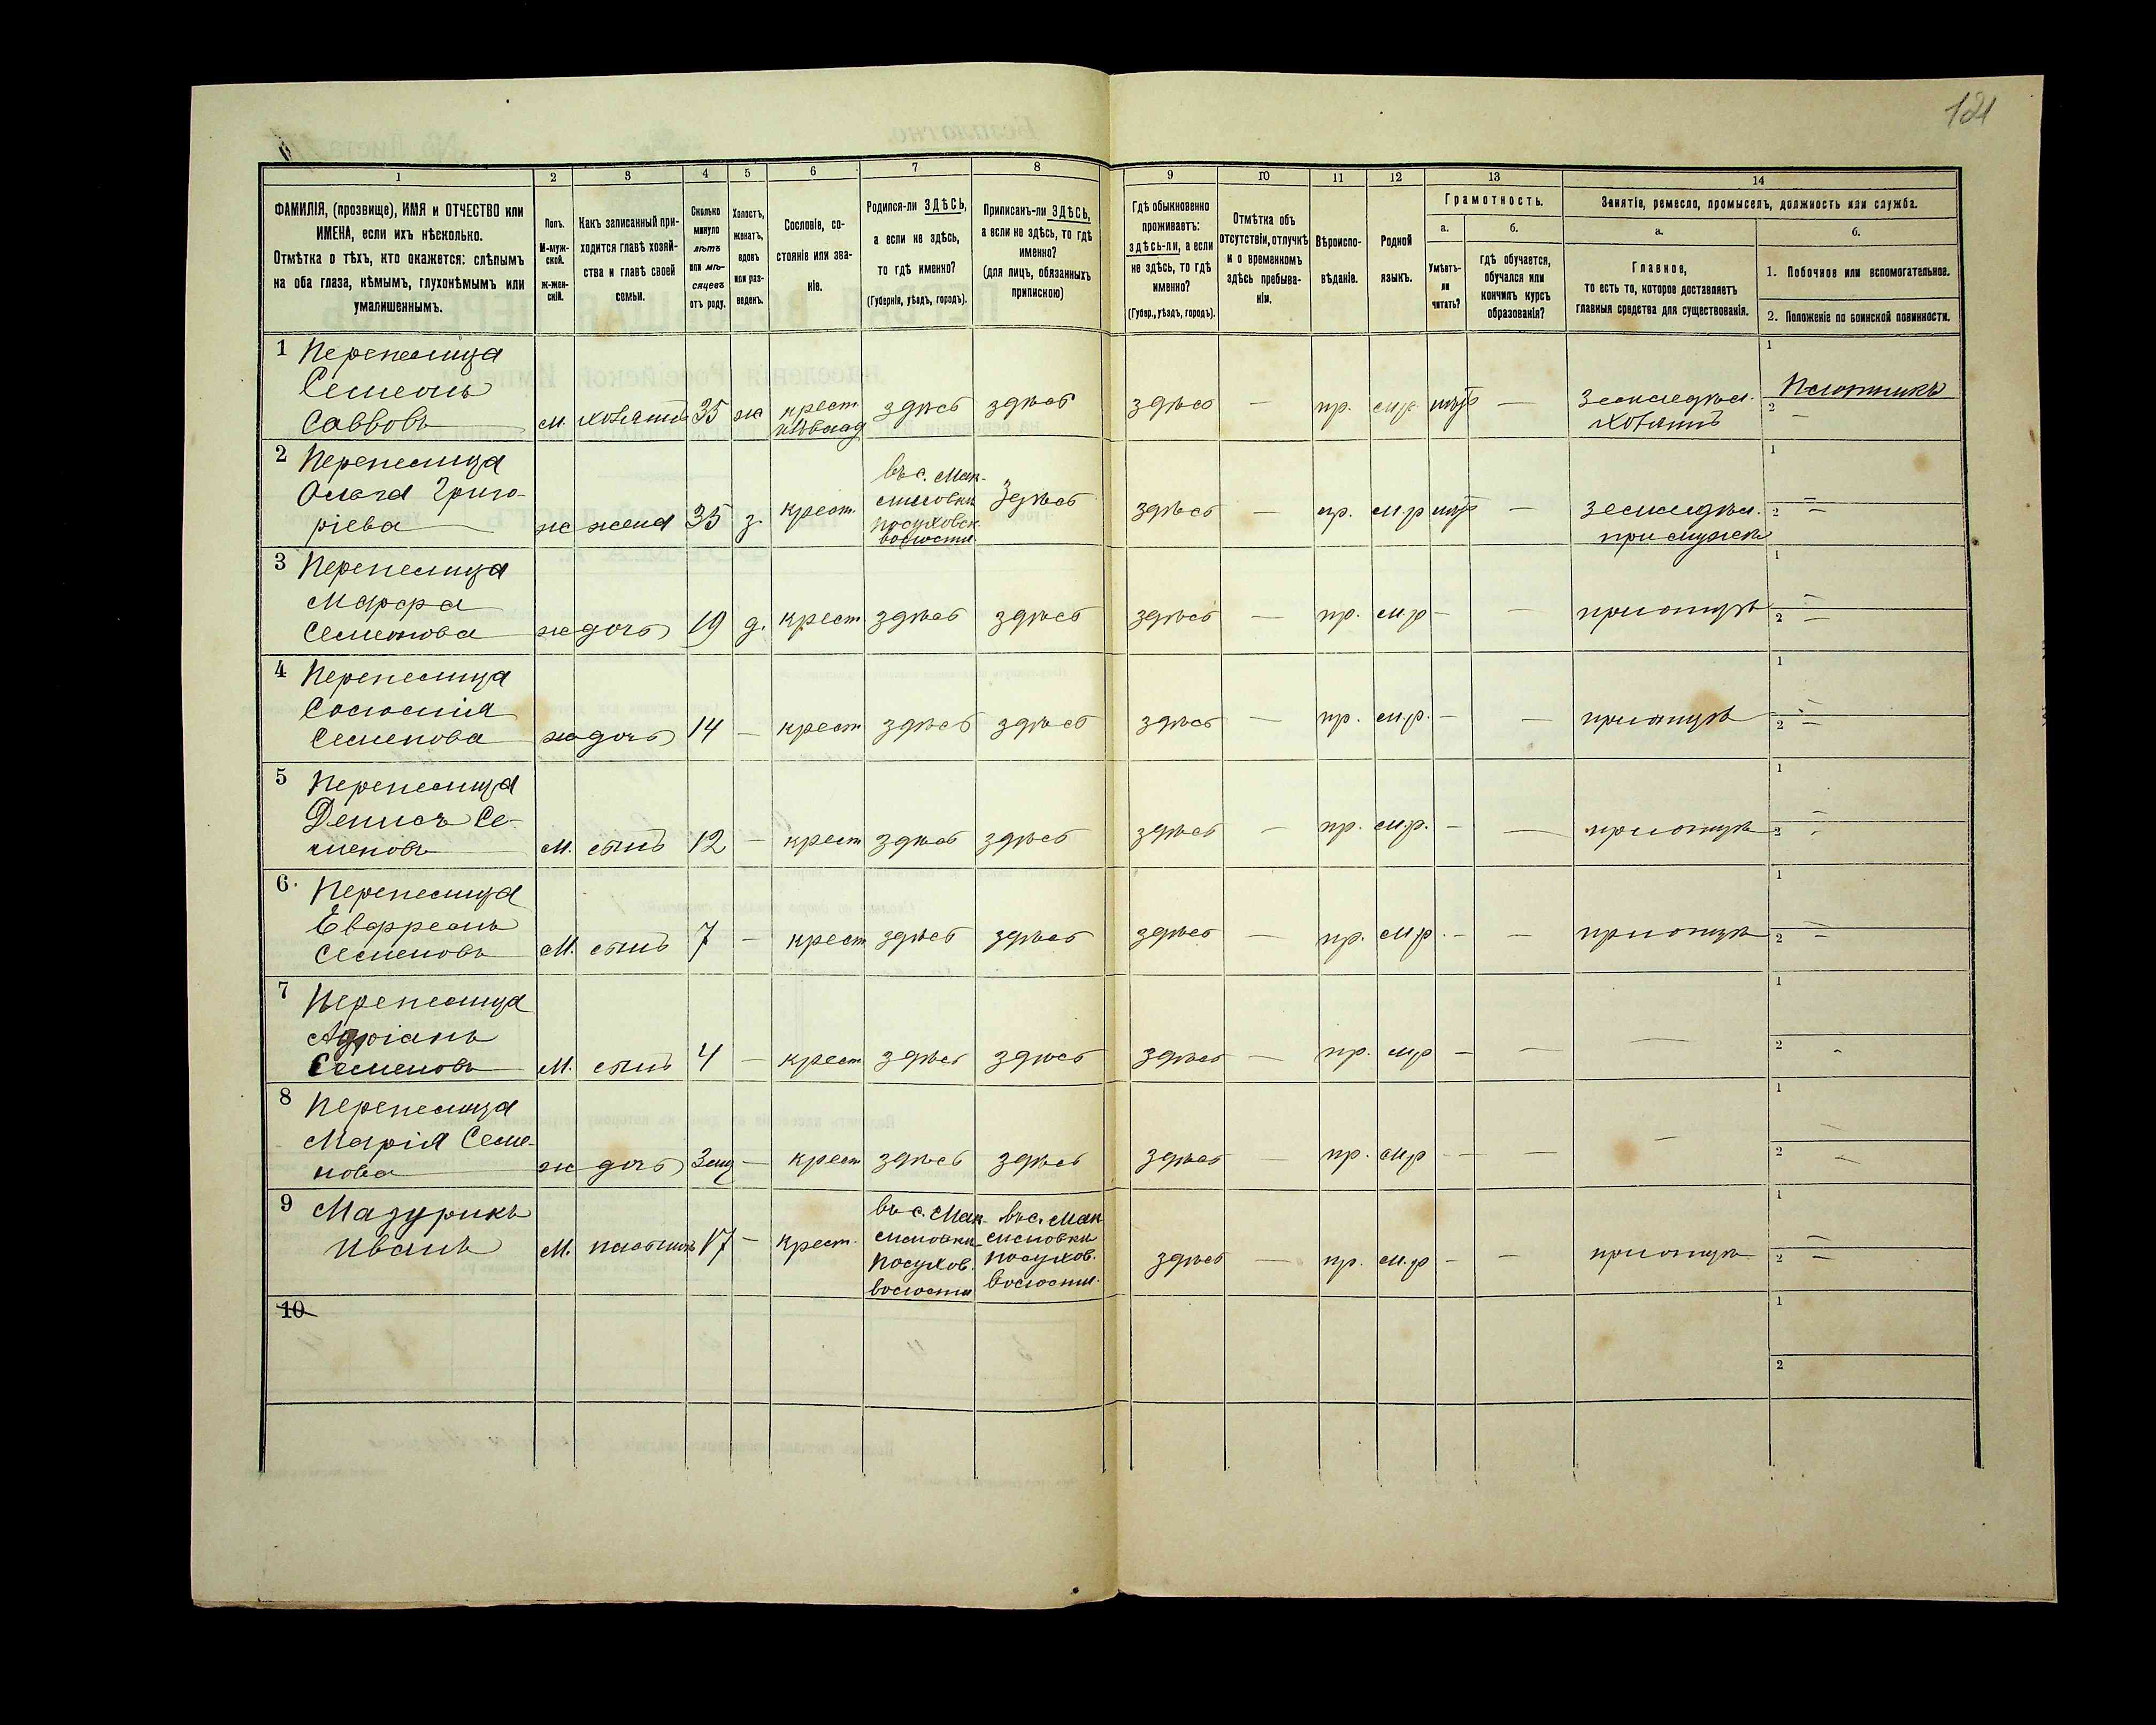 121
1
2
3
4
5
6
7
8
9
10
11
12
13
14
ФАМИЛІЯ, (прозвище), ИМЯ и ОТЧЕСТВО или
ИМЕНА, если ихъ нѣсколько.
Отмѣтка о тѣхъ, кто окажется: слѣпымъ
на оба глаза, нѣмымъ, глухонѣмымъ или
умалишеннымъ.
Полъ.
М-муж-
ской.
ж-жен-
скій.
Какъ записанный при-
ходится главѣ хозяй-
ства и главѣ своей
семьи.
Сколько
минуло
лѣтъ
или мѣ-
сяцевъ
отъ роду.
Холостъ,
женатъ,
вдовъ
или раз-
веденъ.
Сословіе, со-
стояніе или зва-
ніе.
Родился-ли ЗДѢСЬ,
а если не здѣсь,
то гдѣ именно?
(Губернія, уѣздъ, городъ).
Приписанъ-ли ЗДѢСЬ,
а если не здѣсь, то гдѣ
именно?
(для лицъ, обязанныхъ
припискою)
Гдѣ обыкновенно
проживаетъ:
здѣсь-ли, а если
не здѣсь, то гдѣ
именно?
(Губер., уѣздъ, городъ).
Отмѣтка объ
отсутствіи, отлучкѣ
и о временномъ
здѣсь пребыва-
ніи.
Вѣроиспо-
вѣданіе.
Родной
языкъ.
Грамотность.
а.
Умѣетъ-
ли
читать?
б.
гдѣ обучается,
обучался или
кончилъ курсъ
образованія?
Занятіе, ремесло, промыселъ, должность или служба.
а.
Главное,
то есть то, которое доставляетъ
главныя средства для существованія.
б.
1. Побочное или вспомогательное.
2. Положеніе по воинской повинности.
1 Перепелица
Семенъ
Саввовъ м. хозяинъ 35 ж крест здѣсь здѣсь здѣсь — пр. м.р. — земледѣл. 1 Плотникъ
хозяинъ 2 —
2 Перепелица
Григо-
ріева ж жена 35 з. крест. въ с. Мак- Здѣсь здѣсь — пр. м.р — земледѣл. 1 —
симовки
волости при мужѣ 2 —
3 Перепелица
Марфа
Семенова ж дочь 19 д. крест здѣсь здѣсь здѣсь — пр. м.р — — при отцѣ 1 —
2 —
4 Перепелица
Соломія
Семенова ж дочь 14 — крест здѣсь здѣсь здѣсь — пр. м.р. — — при отцѣ 1 —
2 —
5 Перепелица
Денисъ Се-
меновъ м. сынъ 12 — крест здѣсь здѣсь здѣсь — пр. м.р. — — при отцѣ 1 —
2 —
6. Перепелица
Семеновъ м. сынъ 7 — крест здѣсь здѣсь здѣсь — пр. м.р. — — при отцѣ 1 —
2 —
7 Перепелица
Адріанъ
Семеновъ м. сынъ 4 — крест здѣсь здѣсь здѣсь — пр. мр — — — 1
2 -
8 Перепелица
Марія Семе-
нова ж дочь 3 мц — крест здѣсь здѣсь здѣсь — пр. м.р — — — 1 —
2 —
9 Мазурикъ
Иванъ м. 17 — крест. въ с. Мак- въ с. Мак здѣсь — пр. м.р — — при отцѣ 1 —
симовки симовки
волости волости. 2 —
10
1
2